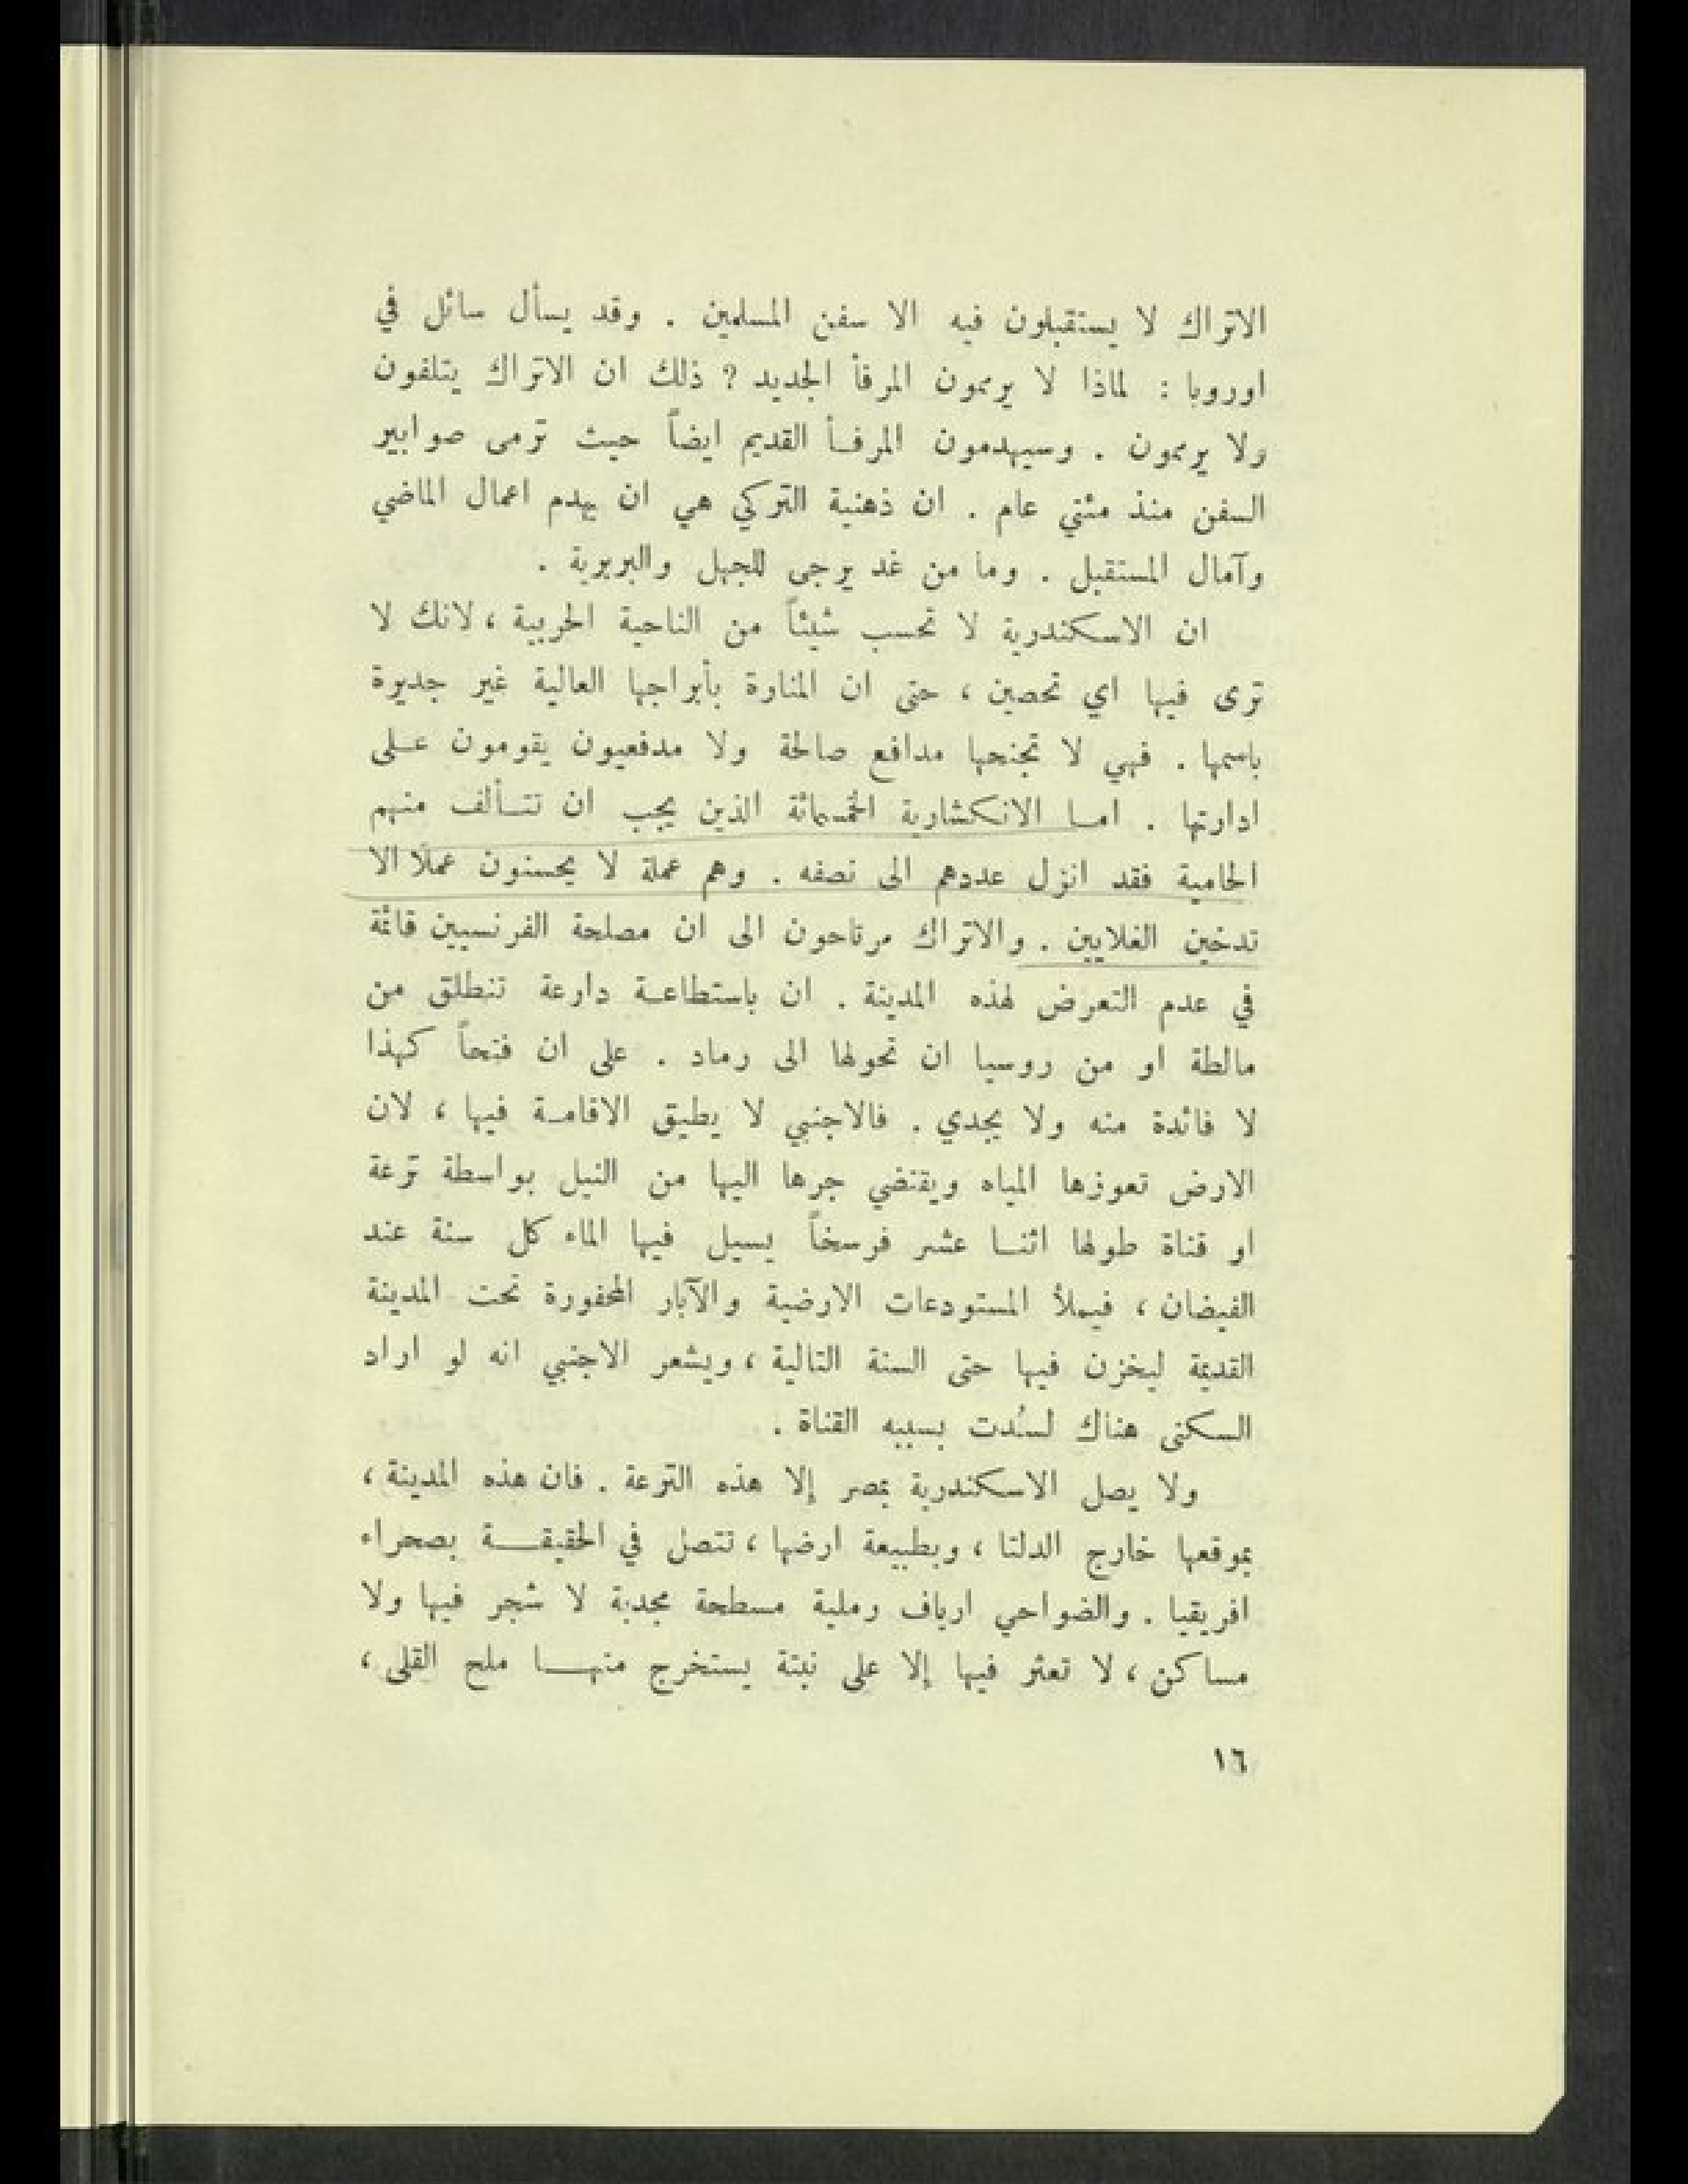 الاتراك لا يستقبلون فيه الا سفن المسلمين . وقد يسأل سائل في
اوروبا : لماذا لا يرممون المرفأ الجديد ? ذلك ان الاتراك يتلفون
ولا يرممون . وسيهدمون المرفأ القديم ايضاً حيث ترمى صوابير
السفن منذ مئتي عام . ان ذهنية التركي هي ان يهدم اعمال الماضي
وآمال المستقبل . وما من غد يرجى للجهل والبربرية .
ان الاسكندرية لا تحسب شيئاً من الناحية الحربية ، لانك لا
ترى فيها اي تحصين ، حتى ان المنارة بأبراجها العالية غير جديرة
باسمها . فهي لا تجنحها مدافع صالحة ولا مدفعيون يقومون على
ادارتها . اما الانكشارية الخمسمائة الذين يجب ان تتألف منهم
الحامية فقد انزل عددهم الى نصفه . وهم عملة لا يحسنون عملًا الا
تدخين الغلايين . والاتراك مرتاحون الى ان مصلحة الفرنسيين قائمة
في عدم التعرض لهذه المدينة . ان باستطاعة دارعة تنطلق من
مالطة او من روسيا ان تحولها الى رماد . على ان فتحاً كهذا
لا فائدة منه ولا يجدي . فالاجنبي لا يطيق الاقامة فيها ، لان
الارض تعوزها المياه ويقتضي جرها اليها من النيل بواسطة ترعة
او قناة طولها اثنا عشر فرسخاً يسيل فيها الماء كل سنة عند
الفيضان ، فيملأ المستودعات الارضية والآبار المحفورة تحت المدينة
القديمة ليخزن فيها حتى السنة التالية ، ويشعر الاجنبي انه لو اراد
السكنى هناك لسُدت بسببه القناة .
ولا يصل الاسكندرية بمصر إلا هذه الترعة . فان هذه المدينة ،
بموقعها خارج الدلتا ، وبطبيعة ارضها ، تتصل في الحقيقة بصحراء
افريقيا . والضواحي ارياف رملية مسطحة مجدبة لا شجر فيها ولا
مساكن ، لا تعثر فيها إلا على نبتة يستخرج منها ملح القلى ،
١٦